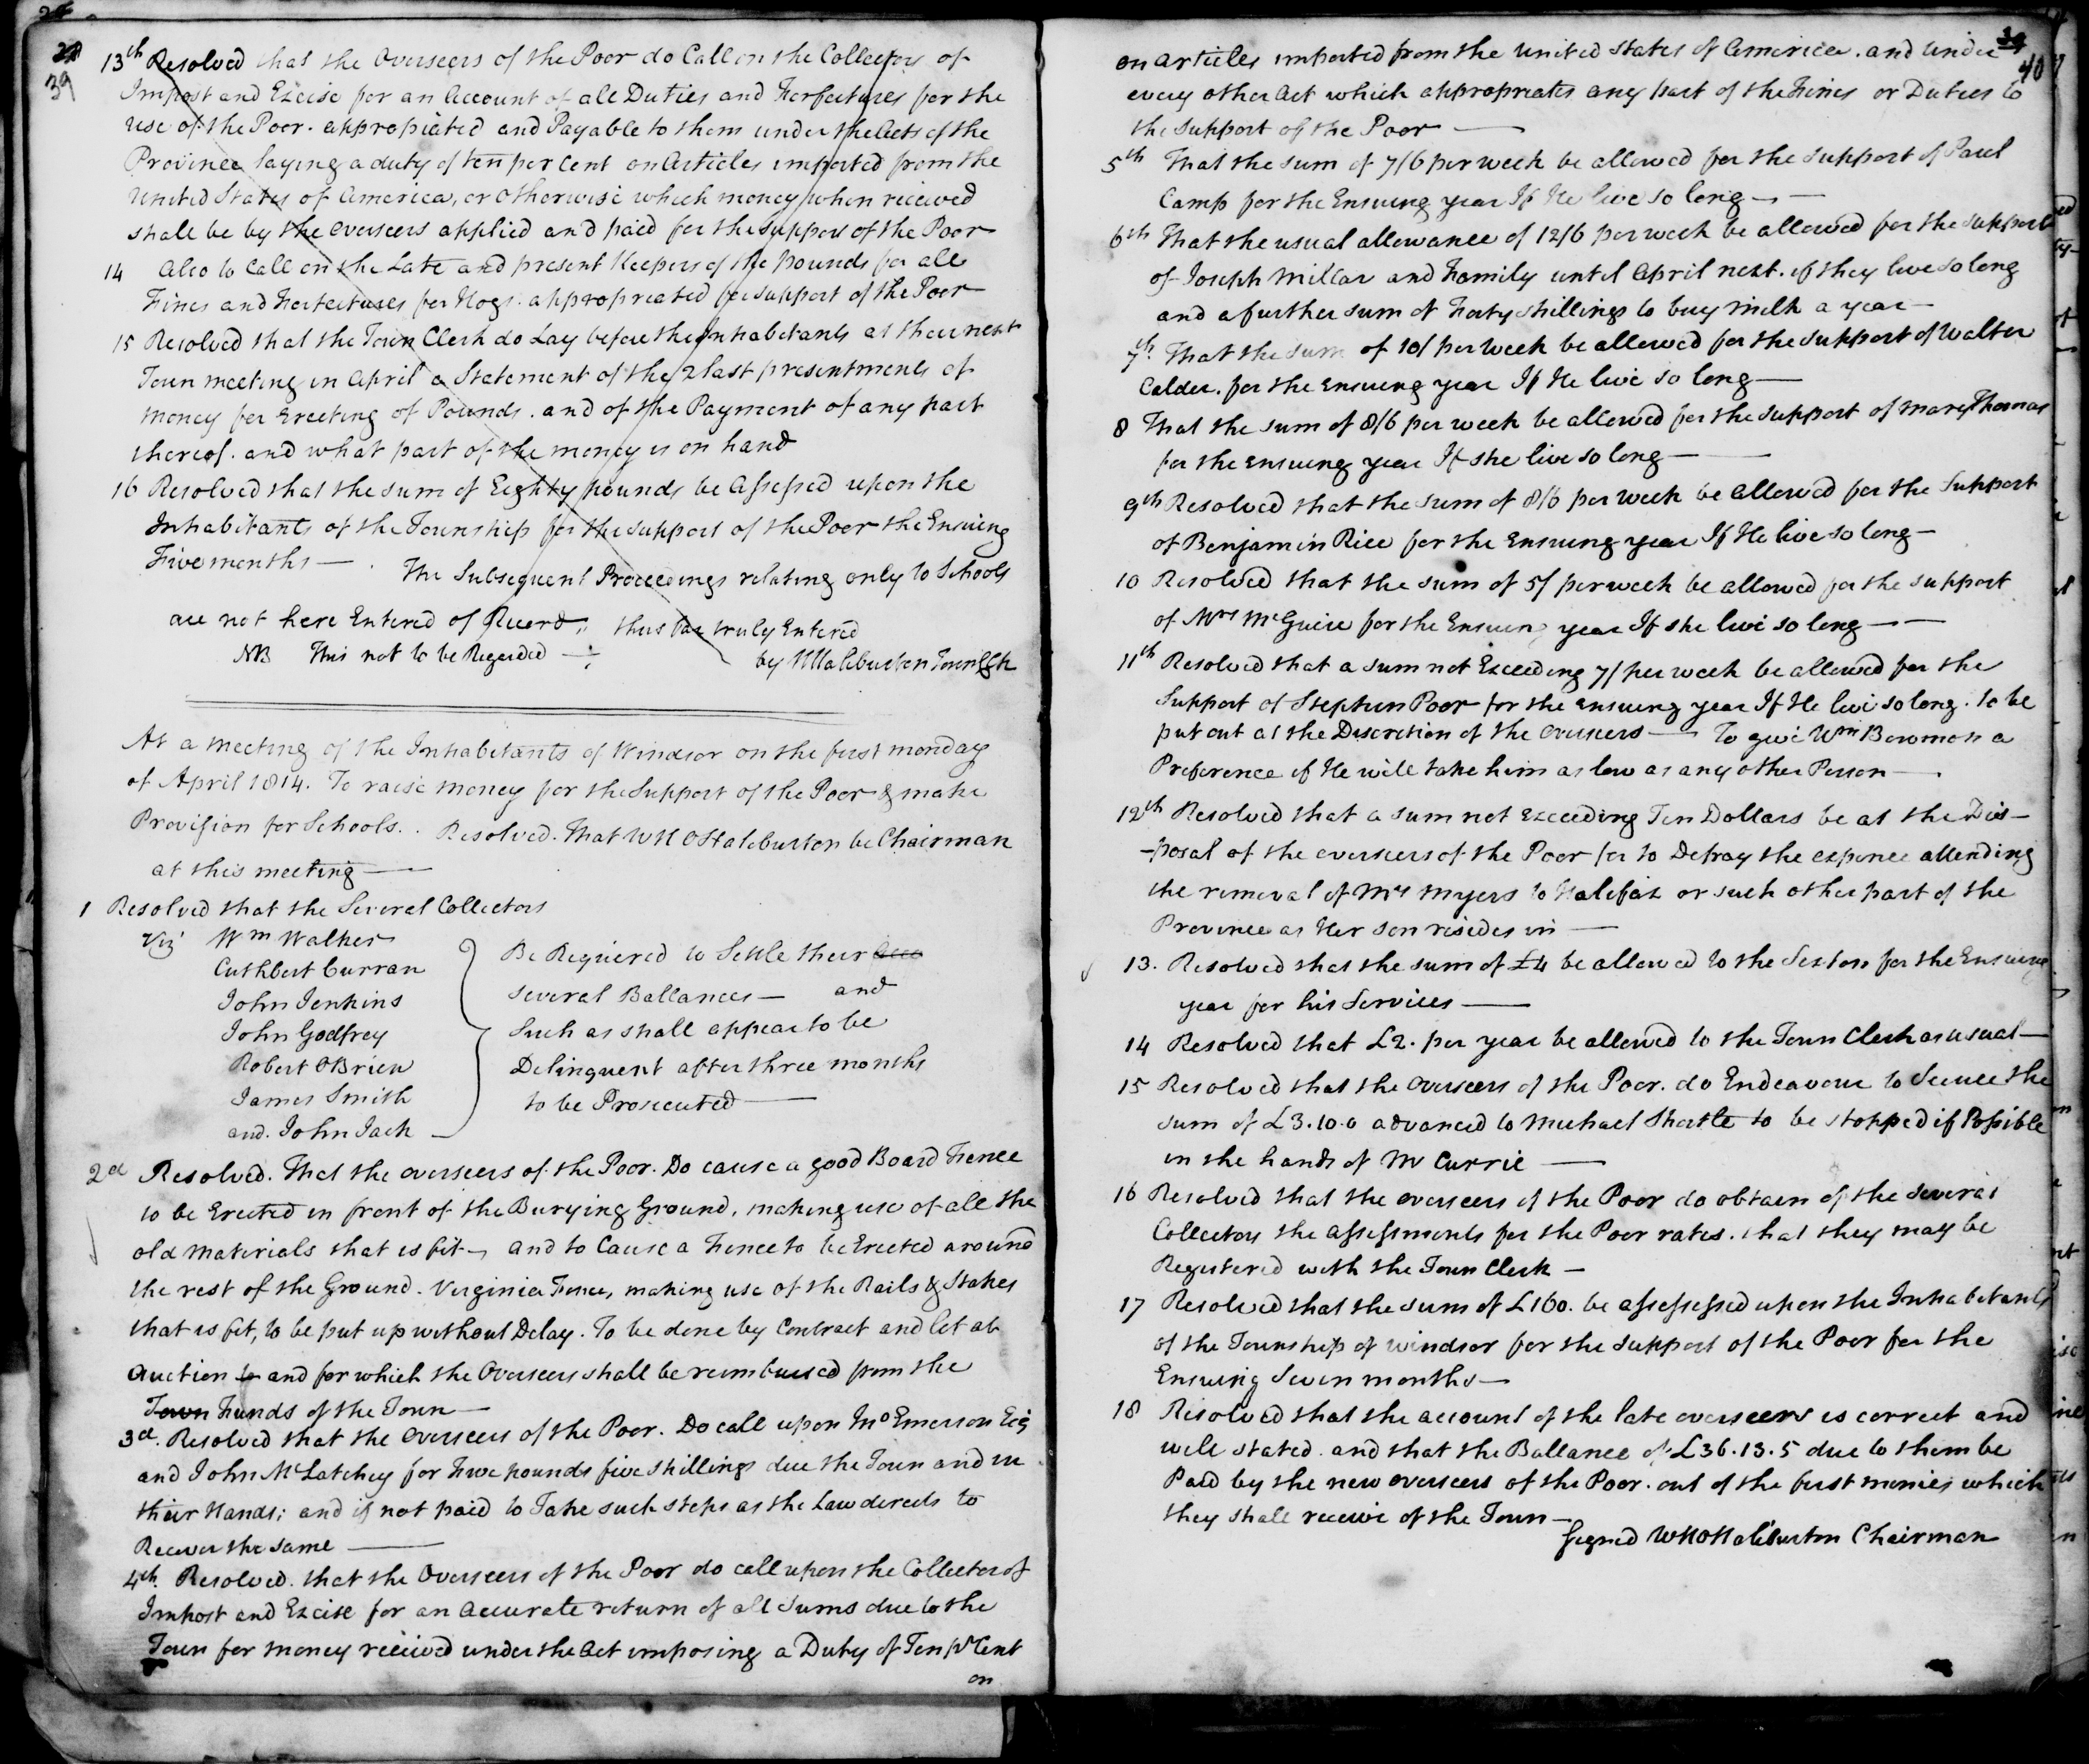 39
13th Resolved that the Overseers of the Poor do Call on the Collectors of
Impost and Excise for an Account of all Duties and Forfeitures for the
use of the Poor. appropiated and Payable to them under the Acts of the
Province laying a duty of ten per Cent on Articles imported from the
United States of America, or otherwise which money when received
shall be by the Overseers applied and paid for the support of the Poor
14 Also to Call on the Late and present Keepers of the pounds for all
Fines and Forfeitures for Hogs. appropreated for support of the Poor
15 Resolved that the Town Clerk do Lay before the inhabitants at their next
Town meeting in April a Statement of the 2 last presentments of
money for Erecting of Pounds. and of the Payment of any part
thereof. and what part of the money is on hand
16 Resolved that the sum of Eighty pounds be Assessed upon the
Inhabitants of the Township for the support of the Poor the Ensuing
Five months — .
The Subsequent Proceedings relating only to Schools
are not here Entered of Record; thus far truly Entered
NB This not to be Regarded — by WHaliburton Town Clk
At a meeting of the Inhabitants of Windsor on the first monday
of April 1814. To raise money for the Support of the Poor & make
Provision for Schools. . Resolved. That WHOHaliburton be Chairman
at this meeting —
1 Resolved that the Several Collectors
Viz' Wm Walker
Cuthbert Curran
John Jenkins
John Godfrey
Robert OBrien
James Smith
and. John Jack
Be Requiered to Settle their Acco
several Ballances — and
Such as shall appear to be
Delinquent after three months
to be Prosecuted —
2d Resolved. That the overseers of the Poor. Do cause a good Board Fence
to be Erected in front of the Burying Ground, making use of all the
old materials that is fit —, and to Cause a Fence to be Erected around
the rest of the Ground. Virginia Fence, making use of the Rails & Stakes
that is fit, to be put up without Delay. To be done by Contract and let at
Auction to and for which the Overseers shall be reimbursed from the
Town Funds of the Town —
3d. Resolved that the Overseers of the Poor. Do call upon Jno Emerson Esq
and John McLatchey for Five pounds five shillings due the Town and in
their Hands; and if not paid to Take such steps as the Law directs to
Recover the same —
4th. Resolved. that the Overseers of the Poor do call upon the Collector of
Impost and Excise for an Accurate return of all Sums due to the
Town for money received under the Act imposing a Duty of Ten pr Cent
on
40
on articles imported from the United States of America. and under
every other Act which appropreates any part of the Fines or Duties to
the support of the Poor —
5th That the sum of 7/6 per week be allowed for the support of Paul
Camp for the Ensuing year If He live so long —
6th That the usual allowance of 12/6 per week be allowed for the support
of Joseph Millar and Family until April next. if they live so long
and a further sum of Forty shillings to buy milk a year —
7th. That the sum of 10/ per Week be allowed for the support of Walter
Calder. for the Ensuing year If He live so long —
8 That the sum of 8/6 per week be allowed for the support of Mary Thomas
for the ensuing year If she live so long —
9th Resolved that the sum of 8/6 per week be allowed for the Support
of Benjamin Rice for the Ensuing year If He live so long —
10 Resolved that the sum of 5/ per week be allowed for the support
of Mrs McGuire for the Ensuing year If she live so long —
11th Resolved that a sum not Exceeding 7/ per week be allowed for the
Support of Stephen Poor for the ensuing year If He live so long. to be
put out at the Discretion of the overseers — To give Wm Bowman a
Preference if He will take him as low as any other Person —
12th Resolved that a sum not exceeding Ten Dollars be at the Dis–
–posal of the overseers of the Poor for to Defray the expence attending
the removal of Mrs Myers to Halifax or such other part of the
Province as Her son resides in —
13. Resolved that the sum of £4 be allowed to the Sexton for the Ensuing
year for his Services —
14 Resolved that £2. per year be allowed to the Town Clerk as usual —
15 Resolved that the Overseers of the Poor. do Endeavour to Secure the
sum of £3.10.0 advanced to Michael Shortle to be stopped if Possible
in the hands of Mr Currie —
16 Resolved that the overseers of the Poor do obtain of the several
Collectors the Assessments for the Poor rates. that they may be
Registered with the Town Clerk —
17 Resolved that the sum of £160. be assessessed upon the Inhabitants
of the Township of Windsor for the support of the Poor for the
Ensuing Seven months —
18 Resolved that the account of the late overseers is correct and
well stated. and that the Ballance of £36.13.5 due to them be
Paid by the new overseers of the Poor. out of the first monies which
they shall receive of the Town —
Signed WHOHaliburton Chairman